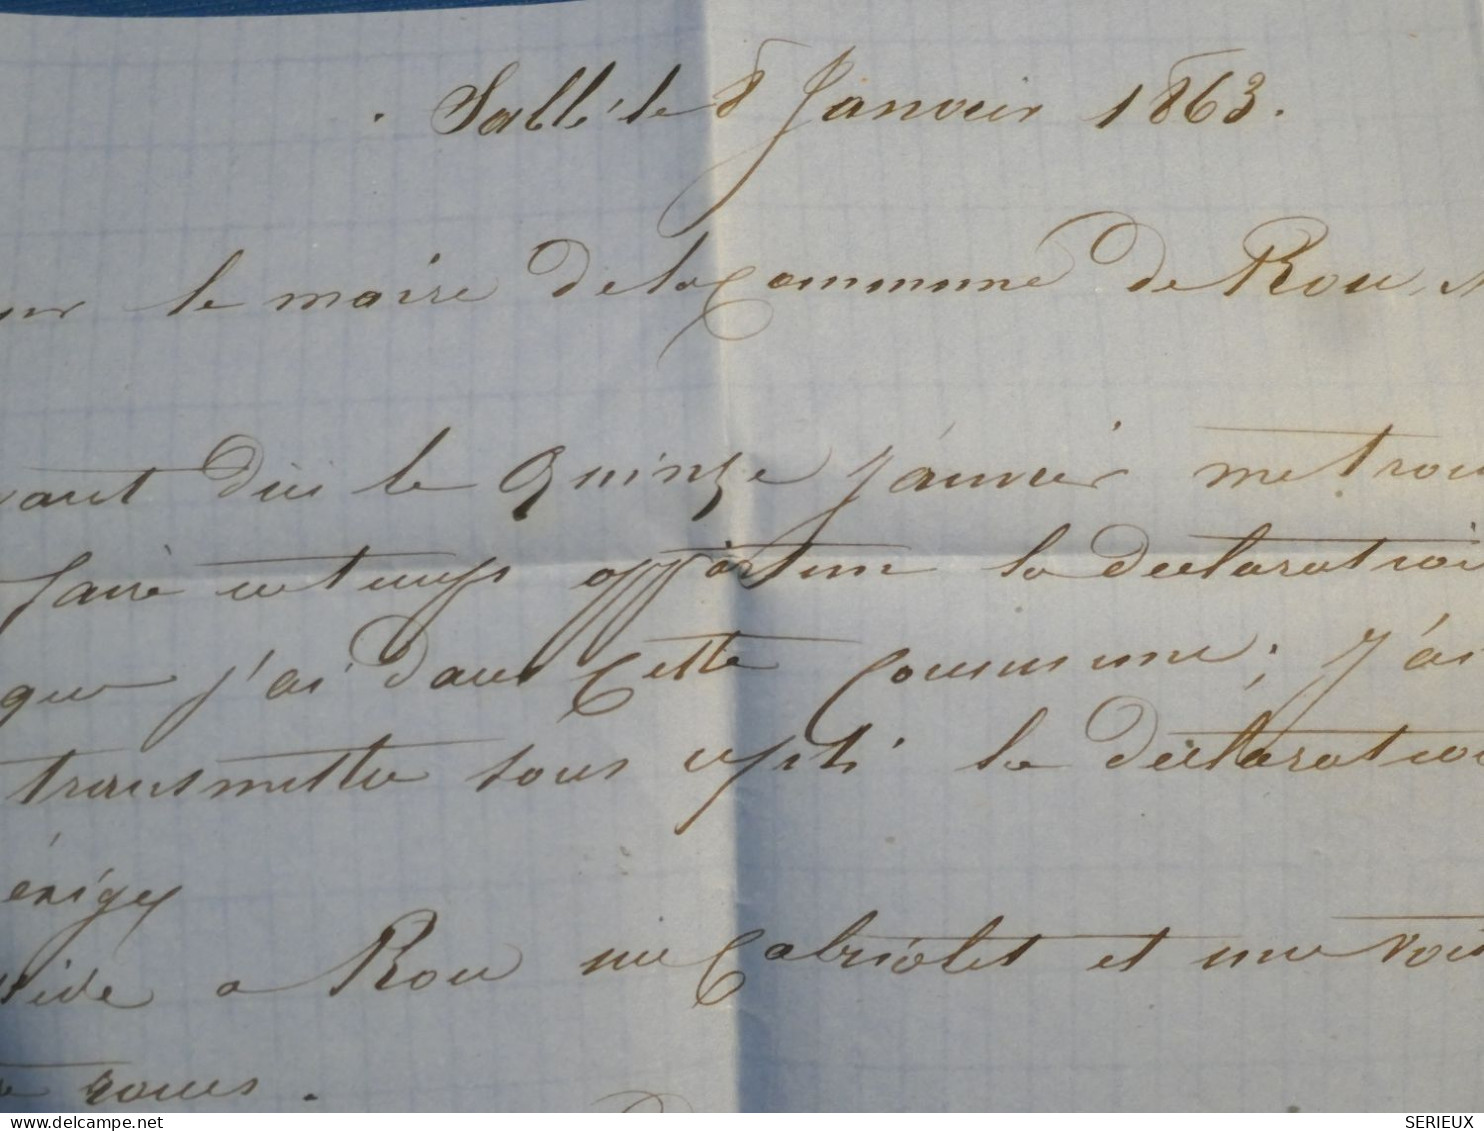 Sablé le 8 Janvier 1863.
le maire de la Commune de Rou
le Quinze Janvier me trou
faire en temps opportun la déclaration
que j'ai dans cette Commune ; j'ai
transmettre sous ce pli la déclaration
exigé
à Rou un Cabriolet et une voit
roues.
www.delcampe.net
SERIEUX